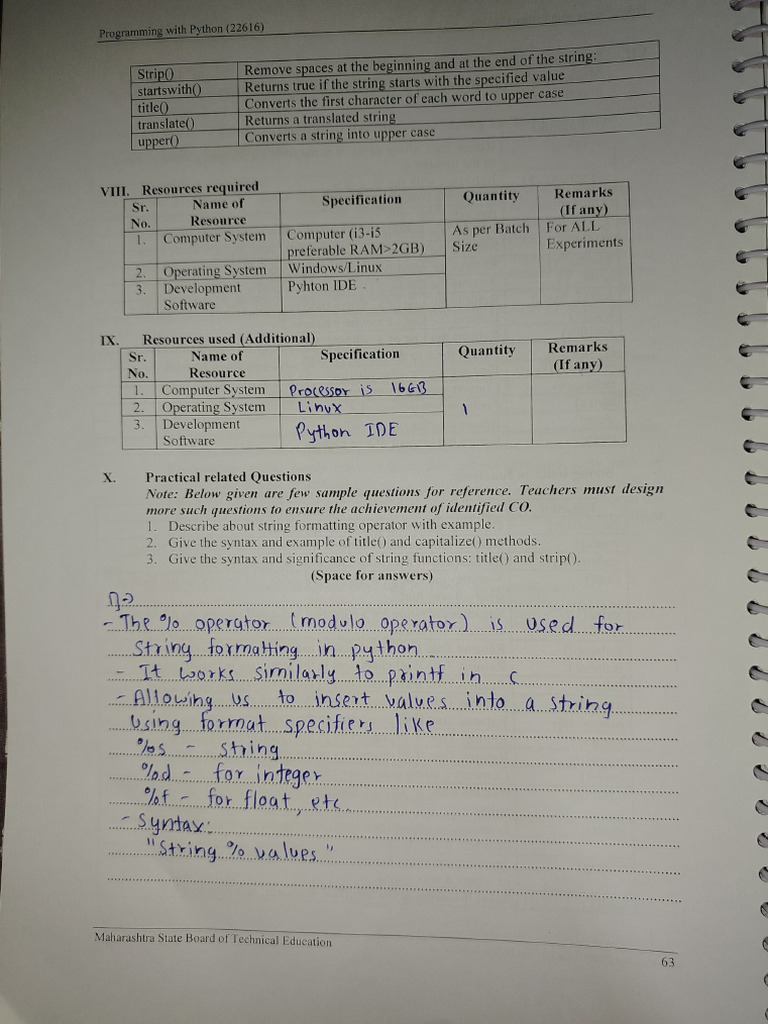 Programming with Python (22616)
Strip() Remove spaces at the beginning and at the end of the string:
startswith() Returns true if the string starts with the specified value
title() Converts the first character of each word to upper case
translate() Returns a translated string
upper() Converts a string into upper case
VIII. Resources required
Sr. No. Name of Resource Specification Quantity Remarks (If any)
1. Computer System Computer (i3-i5 preferable RAM>2GB) As per Batch Size For ALL Experiments
2. Operating System Windows/Linux
3. Development Software Pyhton IDE
IX. Resources used (Additional)
Sr. No. Name of Resource Specification Quantity Remarks (If any)
1. Computer System Processor is 16GB
2. Operating System Linux 1
3. Development Software Python IDE
X. Practical related Questions
Note: Below given are few sample questions for reference. Teachers must design
more such questions to ensure the achievement of identified CO.
1. Describe about string formatting operator with example.
2. Give the syntax and example of title() and capitalize() methods.
3. Give the syntax and significance of string functions: title() and strip().
(Space for answers)
1)→
- The % operator (modulo operator) is used for
string formatting in python
- It works similarly to printf in c
- Allowing us to insert values into a string
using format specifiers like
%s - string
%d - for integer
%f - for float, etc.
- Syntax:
"String % values"
Maharashtra State Board of Technical Education
63